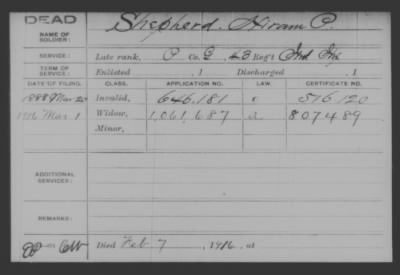 DEAD
NAME OF SOLDIER: Shepherd, Hiram P.
SERVICE: Late rank, P. Co. G, 43 Reg't Ind Inf
TERM OF SERVICE: Enlisted , 1 Discharged , 1
DATE OF FILING. CLASS. APPLICATION NO. LAW. CERTIFICATE NO.
1888 Mar 20 Invalid, 646.181 516.120
1916 Mar 1 Widow, 1,061,687 a 807489
Minor,
ADDITIONAL SERVICES:
REMARKS:
Died Feb 7, 1916, at